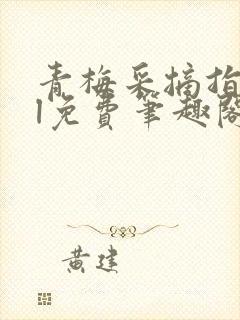 青梅采摘指
1免费笔趣阁
黄建